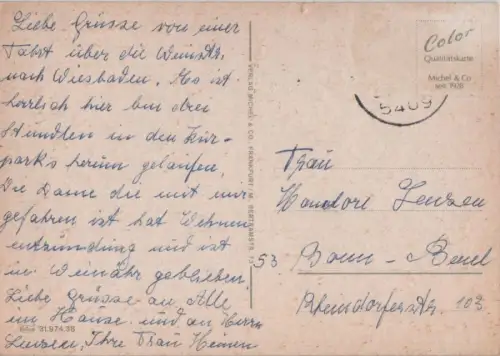 Liebe Grüsse von einer
Fahrt über die Weinstr.
nach Wiesbaden. Es ist
herrlich hier bin drei
Stundten in den Kur-
parks herum gelaufen.
Die Dame die mit mir
gefahren ist hat Wehnen
entzündung und ist
in Weinähr geblieben.
Liebe Grüsse an Alle
im Hause und an Herrn
Lenzen, Ihre Frau
Bild 91.974.38
VERLAG MICHEL & CO. FRANKFURT/M.
Color
Qualitätskarte
Michel & Co
seit 1928
5409
Frau
Hanelore Lenzen
53 Bonn-Beuel
Rhöndorferstr. 102